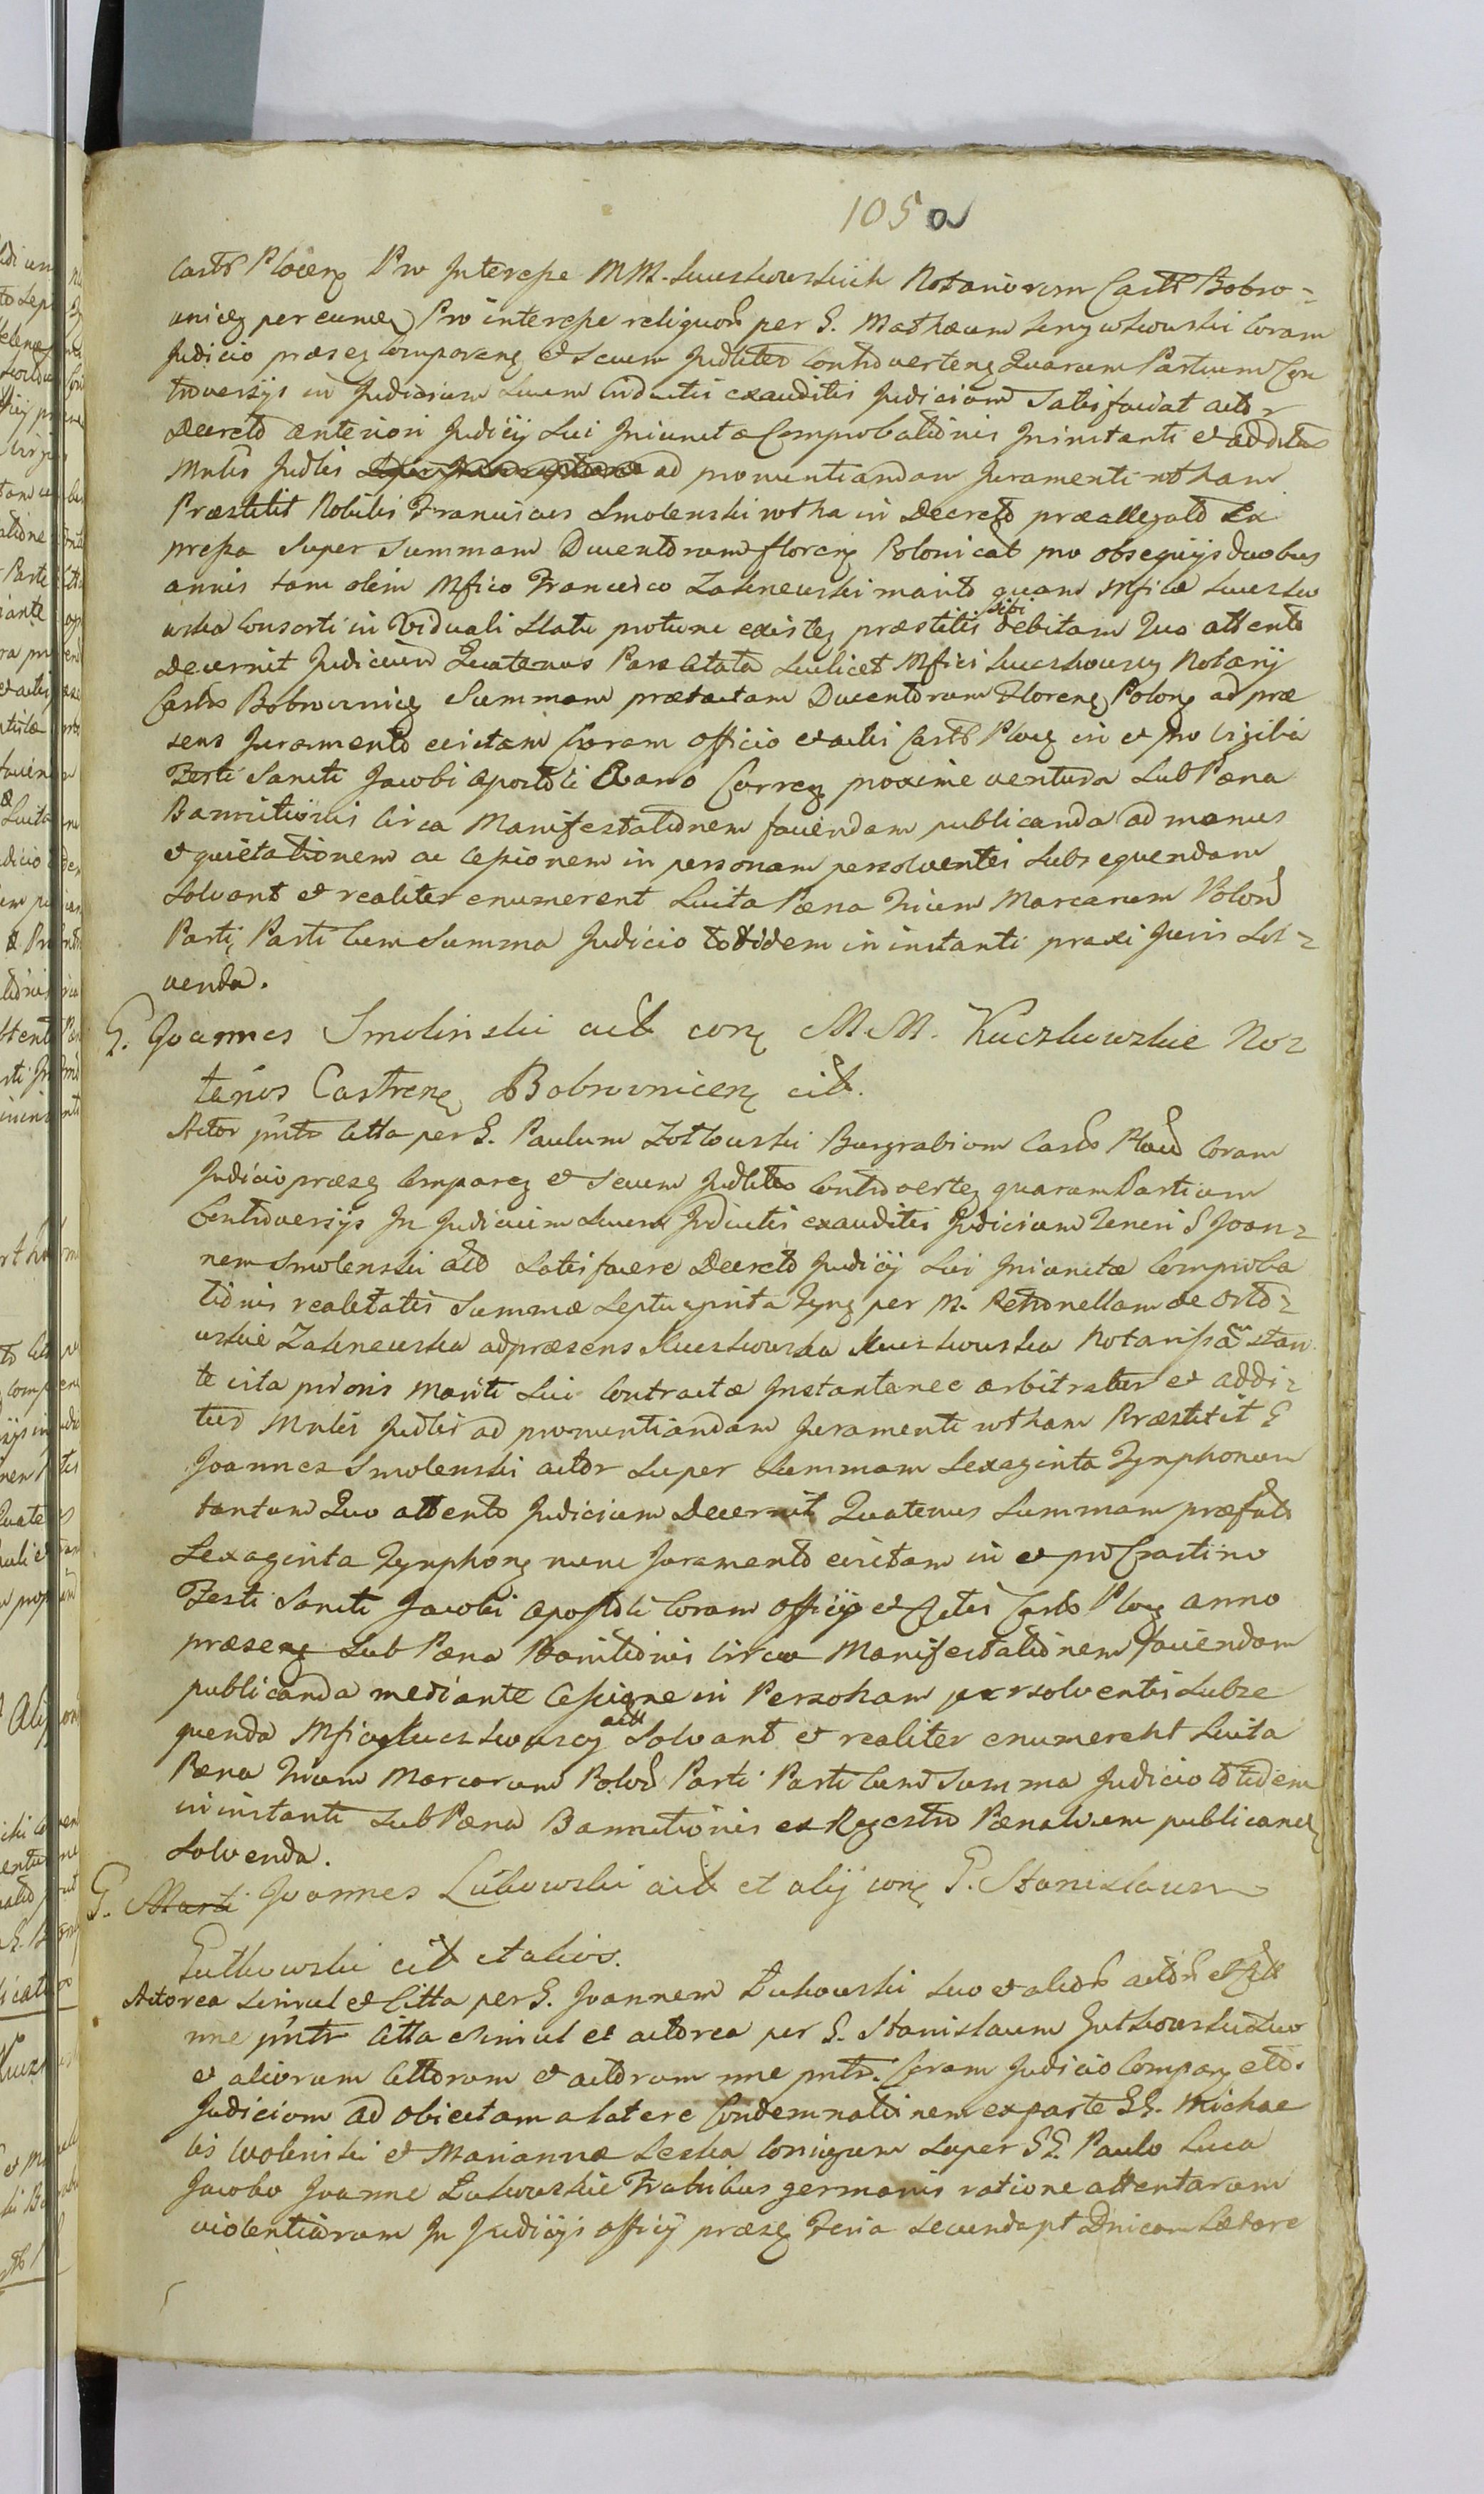 105 a
Castr Plocen Pro Interesse MM. Kuczkowskich Notariorum Castr Bobro-
wnicen per eundem Pro interesse reliquor per G. Mathæum Coram
Judicio præsen Comparen et Secum Judicialiter Controverten Quarum Partium Con
troversijs in Judicium Suum Inductis exauditis Judicium Satisfaciat actor
Decreto anteriori Judicij Sui Iniunctæ Comprobationis In instanti et additus
Mnlis Judlis ad pronuntiandam Juramenti rotham
Præstitit Nobilis Franciscus Smolenski rotha in Decreto præallegato Ex
pressa Super Summam Ducentorum floren Polonical pro obsequijs duobus
annis tam olim Mfico Francisco Zakrzewski marito quam Mficæ Kuczko
wska Consorti in Viduali Statu protunc existen præstitis sibi debitam Quo attento
Decernit Judicium Quatenus Pars Citata Scilicet Mfici Kuczkowscy Notarij
Castr Bobrownicen Summam prætactam Ducentorum Floren Polon ad præ
sens Juramento evictam Coram officio et actis Castr Ploc in et pro Vigilia
Festi Sancti Jacobi Apostoli anno Curren proxime ventura Sub Pæna
Bannitionis Circa Manifestationem faciendam publicanda ad manus
et quietationem ac Cessionem in personam persolventis Subsequendam
Solvant et realiter enumerent Luita Pæna Trium Marcarum Polon
Parti, Parti Cum Summa Judicio totidem in instanti praxi Juris Sol-
venda.
G. Joannes Smolinski act con MM. Kuczkowskie No-
tarios Castren Bobrownicen cit.
Actor pnter Citta per G. Paulum Zotkowski Burgrabium Castr Ploc Coram
Judicio præsen Comparen et Secum Judlter Controverten quarum Partium
Controversijs In Judicium Suum Inductis exauditis Judicium Teneri G Joan-
nem Smolenski act Satisfacere Decreto Judicij Sui Iniunctæ Comproba
tionis realitatis Summæ Septuaginta Tynf per M. Petronellam de
Zakrzewska ad præsens Kuczkowska Notarissam stan
te vita prioris Mariti Sui Contractæ Instantanee arbitratur et addi-
tus Mnlis Judlis ad pronuntiandam Juramenti rotham Præstitit G
Joannes Smolenski actor Super Summam Sexaginta Tynphonum
tantum Quo attento Judicium Decernit Quatenus Summam præfat
Sexaginta Tynphon nunc Juramento evictam in et pro Crastino
Festi Sancti Jacobi Apostoli Coram officijo et Actis Castr Ploc anno
præsen Sub Pæna Banitionis Circa Manifestationem faciendam
publicanda mediante Cessione in Personam persolventis Subse
quenda Mfici Kuczkowscy Solvant et realiter enumerent Luita
Pæna Trium Marcarum Polon Parti Parti Cum Summa Judicio totidem
in instanti Sub Pæna Bannitionis ex Regestro Pænalium publicanda
Solvenda.
G. Marti Joannes Łukowski act et alij con G. Stanislaum
Gutkowski cit et alios.
Actorea simul et Citta per G. Joannem Łukowski Suo et alior actor et Citt
nne pnter Citta simul et actorea per G. Stanislaum Gutkowski Suo
et aliorum Cittorum et actorum nne pnter. Coram Judicio Compar etc.
Judicium ad obiectam a latere Condemnationem ex parte GG. Michae
lis Wolinski et Mariannæ Leska Coniugum Super GG. Paulo Luca
Jacobo Joanne Łukowskie Fratribus germanis ratione attentarum
violentiarum In Judicijs officij præsen Feria Secunda pt Dnicam Lætare